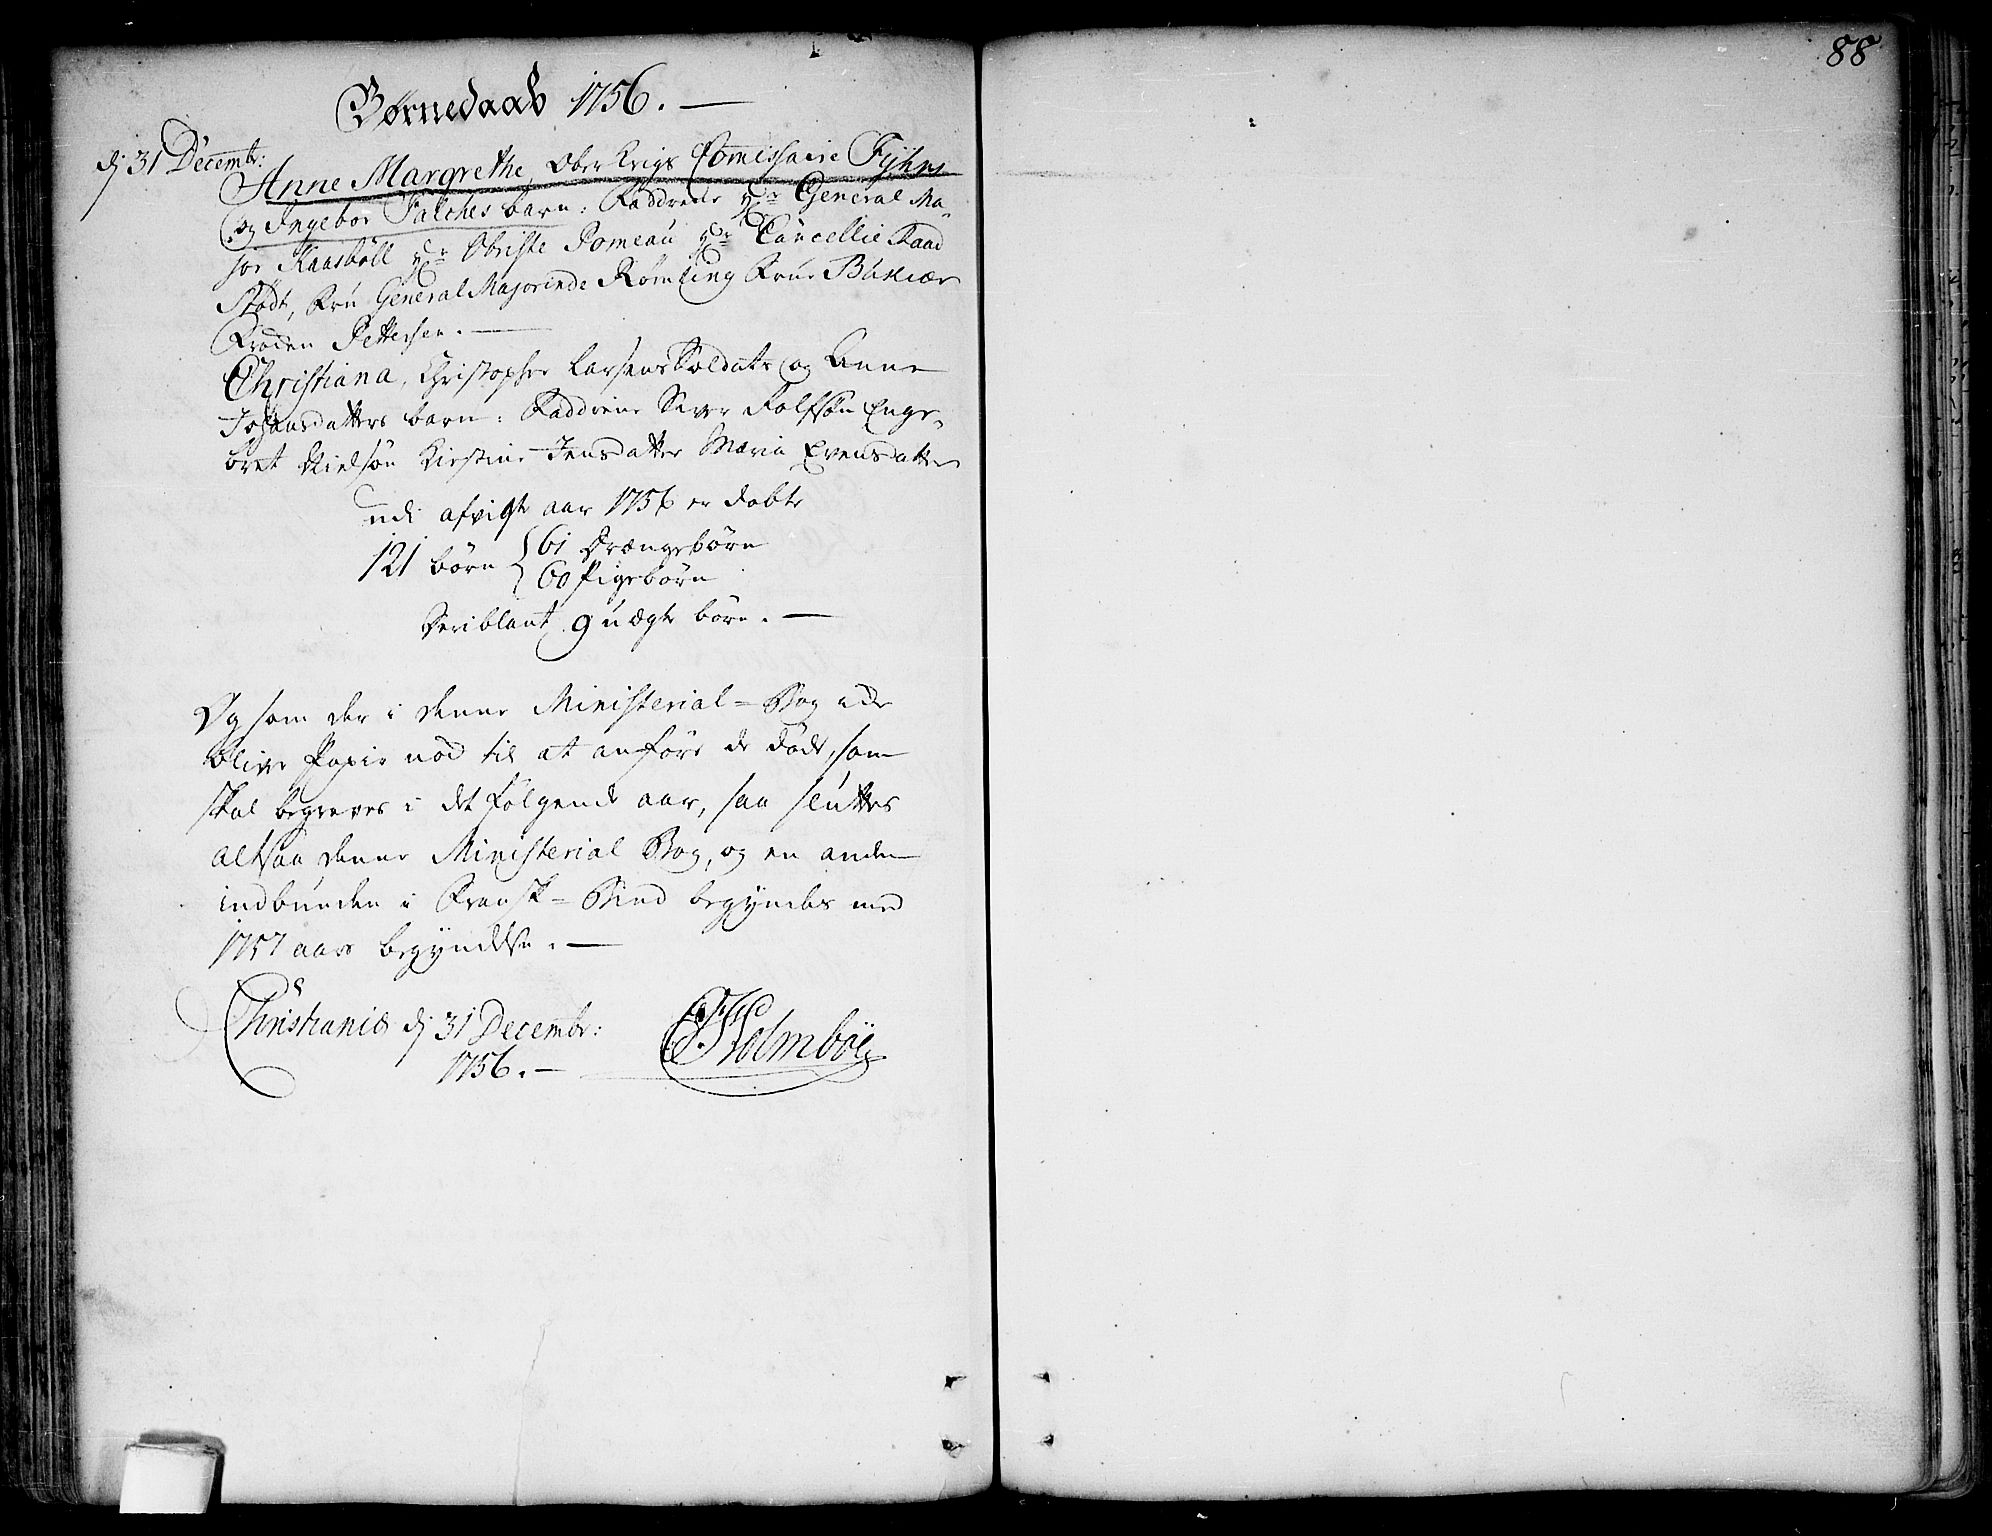 88
Børnedaab 1756. —
dj 31 Decembr:
Anne Margrethe, Ober Krigs Comissaire Fyhns
og Ingebor Falches barn: Faddrene Hr General Ma-
jor Kaasböll Hr Obriste Pomeau Hr Cancellie Raad
Stödt, Fru General Majorinde Römling Frue Buskiær
Frøden Pettersen. —
Christiana, Christopher Larsens Soldats og Anne
Johansdatters barn: Faddrene Siver Rolfsön Enge-
bret Nielsön Kirstine Jensdatter Maria Evensdatter
udi afvigte aar 1756 er døbte
121 börn { 61 Drængebörn
60 Pigebörn
Deriblant 9 uægte börn. —
Og som der i denne Ministerial-Bog icke
bliver Papir nod til at anföre de döde, som
skal begraves i det følgende aar, saa sluttes
altsaa denne Ministerial Bog, og en anden
indbunden i Fransk-Bind begyndes med
1757 aars begyndelse. —
Christiania dj 31 Decembr:
1756. —
Holmboe